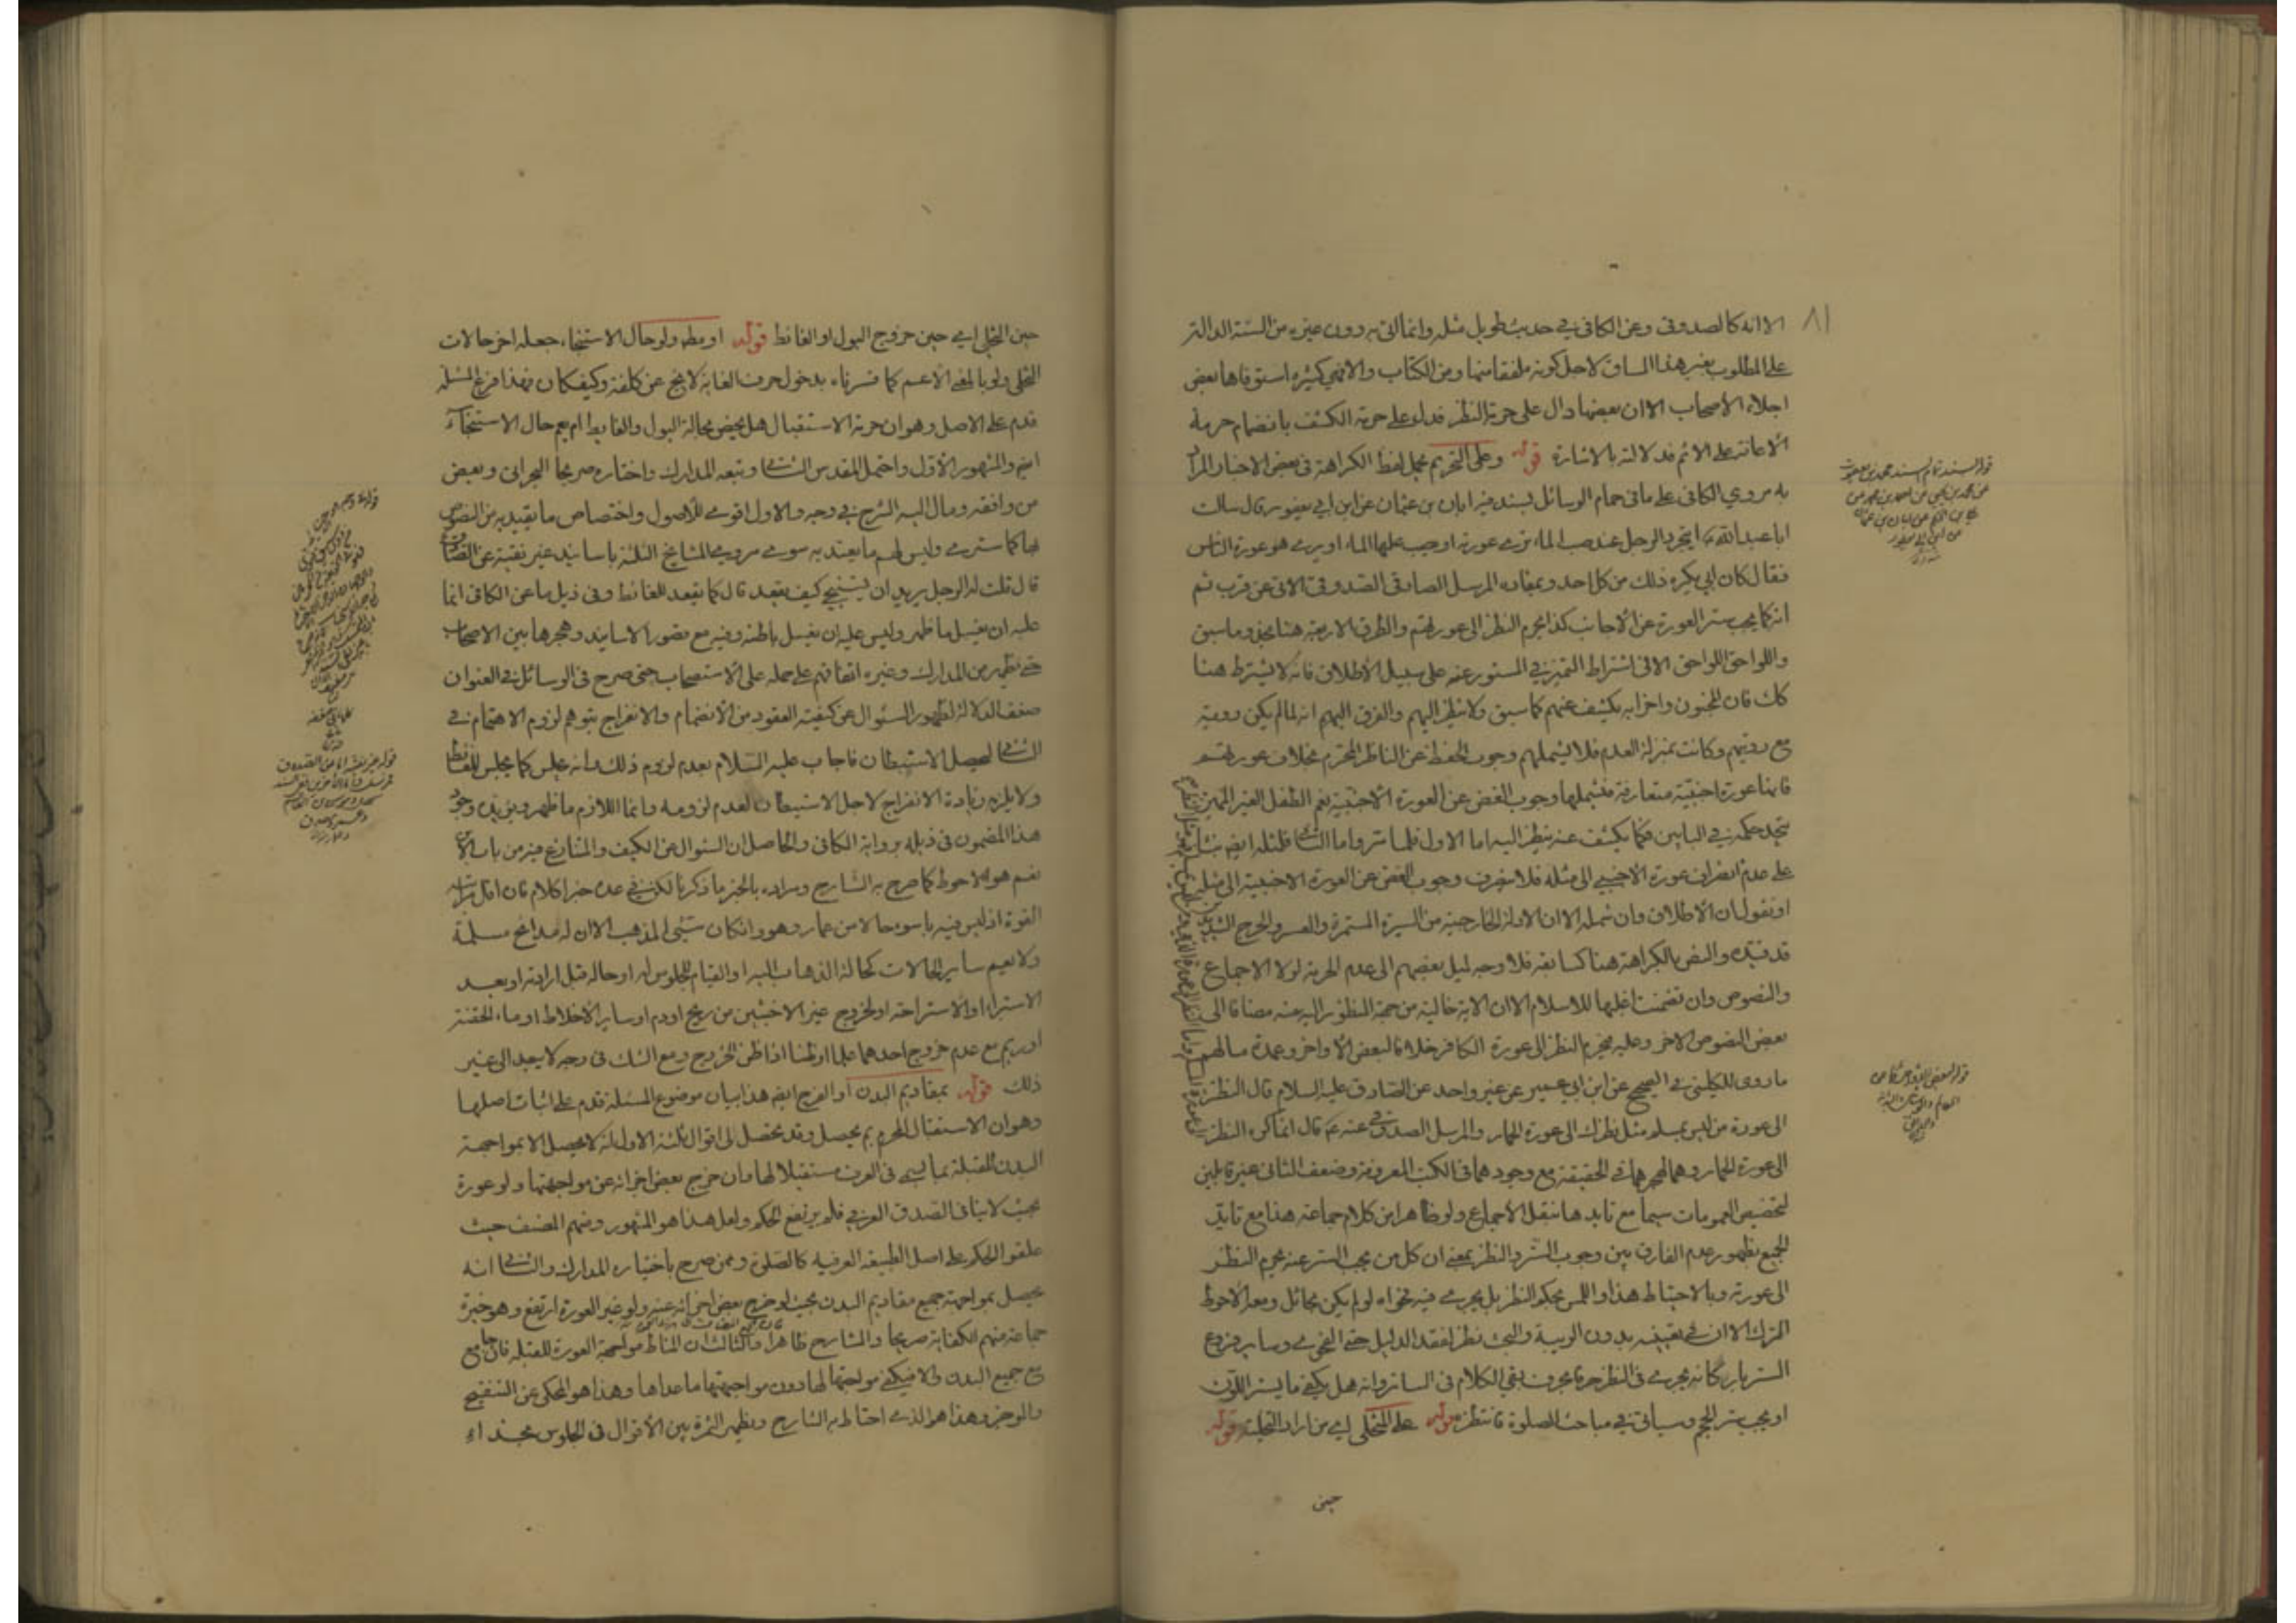 ٨١
الا انه كالصدوق وعن الكافي في حديث طويل مثله وانما اتى به دون غيره من السنة الدالة
على المطلوب بغير هذا المساق لاجل كونه ملفقا منها ومن الكتاب والا فهي كثيرة استوفاها بعض
اجلاء الاصحاب الا ان بعضها دال على حرمة النظر فدل على حرمة الكشف بانضمام حرمة
الاعانة على الاثم فدلالته بالاشارة قوله وعلى التحريم يحمل لفظ الكراهة في بعض الاخبار المراد
به مروي الكافي على ما في حمام الوسائل بسند فيه ابان بن عثمان عن ابن ابي يعفور قال سالت
ابا عبد الله ع ايتجرد الرجل عند صب الماء ترى عورته او يصب عليها الماء او يرى هو عورة الناس
فقال كان ابي يكره ذلك من كل احد وبمفاده المرسل الصادقي الصدوقي الاتي عن قرب ثم
انه كما يجب ستر العورة عن الاجانب كذا يحرم النظر الى عورتهم والطرق الاربعة هنا يجزى وما سبق
واللواحق اللواحق الا في اشتراط التميز في المستور عنه على سبيل الاطلاق فانه لا يشترط هنا
كك فان المجنون واضرابه يكشف عنهم كما سبق ولا ينظر اليهم والفرق اليهم انه لما لم يكن روية
مع رويتهم وكانت بمنزلة العدم فلا يشملهم وجوب الحفظ عن الناظر المحترم بخلاف عورتهم
فانها عورة اجنبية متعارفة فيشملها وجوب الغض عن العورة الاجنبية نعم الطفل الغير المميز
يتحد حكمه في البابين فكما يكشف عنه ينظر اليه اما الاول فلما مر واما الثاني فلمثله ايضا بناء
على عدم انصراف عورة الاجنبي الى مثله فلا ينصرف وجوب الغض عن العورة الاجنبية الى مثله
او نقول ان الاطلاق وان شمله الا ان الادلة الخارجية من السيرة المستمرة والعسر والحرج الشديد
قد قيدته والنص بالكراهة هنا كسابقه فلا وجه لميل بعضهم الى عدم الحرمة لولا الاجماع
والنصوص وان تضمنت اغلبها للاسلام الا ان الاية خالية من جهة المنظور اليه عنه مضافا الى
بعض النصوص الاخر وعليه يحرم النظر الى عورة الكافر خلافا لبعض الاواخر وعمدة مالهم
ما روى الكليني في الصحيح عن ابن ابي عمير عن غير واحد عن الصادق عليه السلام قال النظر
الى عورة من ليس بمسلم مثل نظرك الى عورة الحمار والمرسل الصدوقي عنه ع قال انما اكره النظر
الى عورة الحمار وهما لهجرهما في الحقيقة مع وجودهما في الكتب المعروفة وضعف الثاني غير قابلين
لتخصيص العمومات سيما مع تايدها بنقل الاجماع ولو ظاهرا من كلام جماعة هنا مع تايد
الجميع بظهور عدم الفارق بين وجوب الستر والنظر بمعنى ان كل من يجب الستر عنه يحرم النظر
الى عورته وبالاحتياط هذا واللمس بحكم النظر بل يجري فيه فحواه لو لم يكن بحائل ومعه الاحوط
الترك الا ان في تعينه بدون الريبة والبحث نظر لفقد الدليل حتى الفحوى وساير فروع
الستر باركانه يجري في النظر حرفا بحرف بقي الكلام في الساتر وانه هل يكفي ما يستر اللون
او يجب ستر الحجم وسياتي في مباحث الصلوة فانتظر قوله على المتخلي اي من اراد التخلية قوله
حين
قوله لبعض الاواخر
حين التخلي اي حين خروج البول او الغائط قوله او مطه ولو حال الاستنجاء جعله اخر حالات
التخلي ولو بالمعنى الاعم كما فسرناه بدخول حرف الغاية لا يخ عن كلفة وكيف كان فهذا فرع المسئلة
قدم على الاصل وهو ان حرمة الاستقبال هل يخص بحالة البول والغايط ام يعم حال الاستنجاء
ايض والمشهور الاول واحتمل المقدس الثاني وتبعه المدارك واختاره صريحا البحراني وبعض
من وافقه ومال اليه الشرح في وجه والاول اقوى للاصول واختصاص ما يقيد به من النصوص
بها كما سترى وليس لهم ما يعتد به سوى مروي المشايخ الثلثة باسانيد غير نقية عن الصادق
قال قلت له الرجل يريد ان يستنجي كيف يقعد قال كما يقعد للغائط وفي ذيل ما عن الكافي انما
عليه ان يغسل ما ظهر وليس عليه ان يغسل باطنه وفيه مع قصور الاسانيد وهجرها بين الاصحاب
حتى يظهر من المدارك وغيره اتفاقهم على حمله على الاستحباب حتى صرح في الوسائل في العنوان
ضعف الدلالة لظهور السئوال عن كيفية القعود من الانضمام والانفراج بتوهم لزوم الاهتمام في
الثاني ليحصل الاستبطان فاجاب عليه السلام بعدم لزوم ذلك وانه يجلس كما يجلس للغائط
ولا يلزم زيادة الانفراج لاجل الاستبطان لعدم لزومه وانما اللازم ما ظهر ويؤيده وجود
هذا المضمون في ذيله برواية الكافي والحاصل ان السئوال عن الكيف والمتنازع فيه من باب الاين
نعم هو الاحوط كما صرح به الشارح ومراده بالخبر ما ذكرنا لكن في عده خبرا كلام فان اقل مراتبه
القوة اذ ليس فيه باسوء حالا من عمار وهو وان كان سيئي المذهب الا ان له مدائح مسلمة
ولا يعم ساير الحالات كحالة الذهاب اليه او القيام للجلوس له او حاله قبل ارادته او بعد
الاستبراء او الاستراحة او لخروج غير الاخبثين من ريح او دم او ساير الاخلاط او ماء الحقنة
او ريم مع عدم خروج احدهما علما او ظنا اذا ظن الخروج ومع الشك في وجه لا يبعد الى غير
ذلك قوله بمقاديم البدن او الفرج ايض هذا بيان موضوع المسئلة قدم على اثبات اصلها
وهو ان الاستقبال المحرم بم يحصل وقد تحصل لي اقوال ثلثة الاول انه لا يحصل الا بمواجهة
البدن للقبلة بما يسمى في العرف مستقبلا لها وان خرج بعض اجزائه عن مواجهتها ولو عورة
بحيث لا ينافي الصدق العرفي فلم يرتفع الحكم ولعل هذا هو المشهور ومنهم المصنف حيث
علقوا الحكم على اصل الطبيعة العرفية كالصلوة وممن صرح باختياره المدارك والثاني انه
يحصل بمواجهة جميع مقاديم البدن بحيث لو خرج بعض اجزائه عنه ولو غير العورة ارتفع وهو خيرة
جماعة منهم الكفاية صريحا والشارح ظاهرا والثالث ان المناط مواجهة العورة للقبلة فان جامع
مع جميع البدن والا فيكفي مواجهتها لها دون مواجهتها ما عداها وهذا هو المحكي عن التنقيح
والموجز وهذا هو الذي احتاط به الشارح ويظهر الثمرة بين الاقوال في الجلوس بحذاء